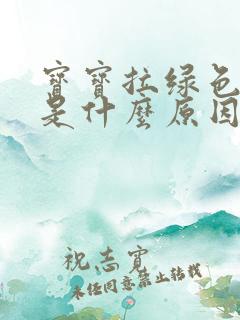 寶寶拉綠色
是什麼原因
祝志寶
未經同意禁止轉載